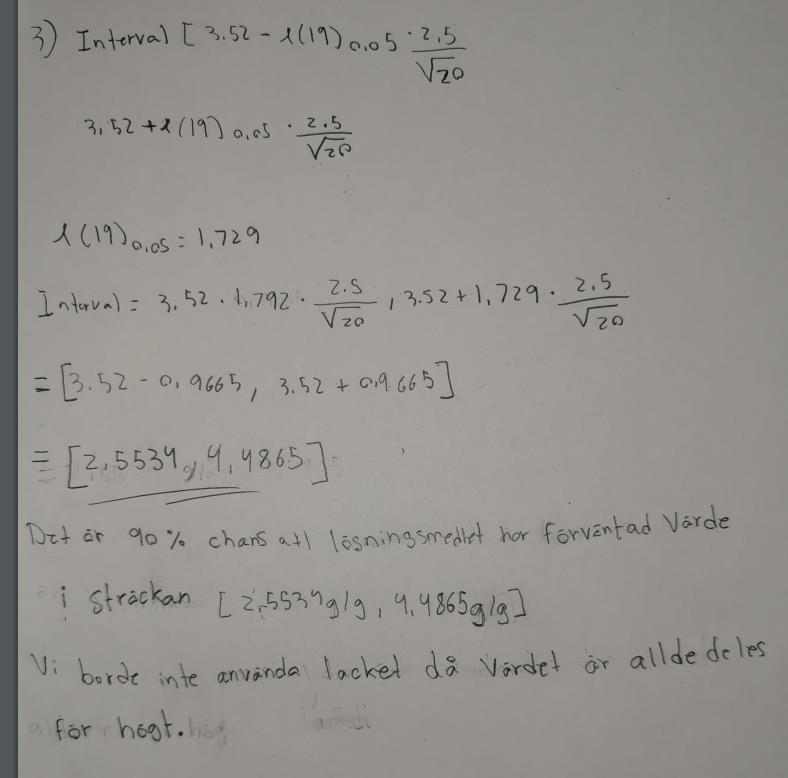 3) Interval [ 3.52 - t(19)0.05 · 2.5/√20
3,52 + t(19)0,05 · 2.5/√20
t(19)0,05 = 1,729
Interval = 3,52 · 1,792 · 2.5/√20 , 3.52 + 1,729 · 2,5/√20
= [3.52 - 0,9665, 3.52 + 0,9665]
= [2,5534, 4,4865]
Det är 90% chans att lösningsmedlet har förväntad Värde
i sträckan [2,5534g/g, 4,4865g/g]
Vi borde inte använda lacket då Värdet är alldedeles
för högt.